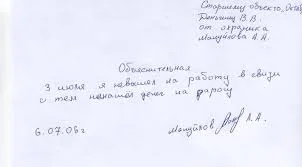 Старшему объекта, Октяб
Деньгину В.В.
от охранника
Мацуткова А.А.
Объяснительная
3 июля я невышел на работу в связи
с тем ненашел денег на дарогу
6.07.06г
А.А.